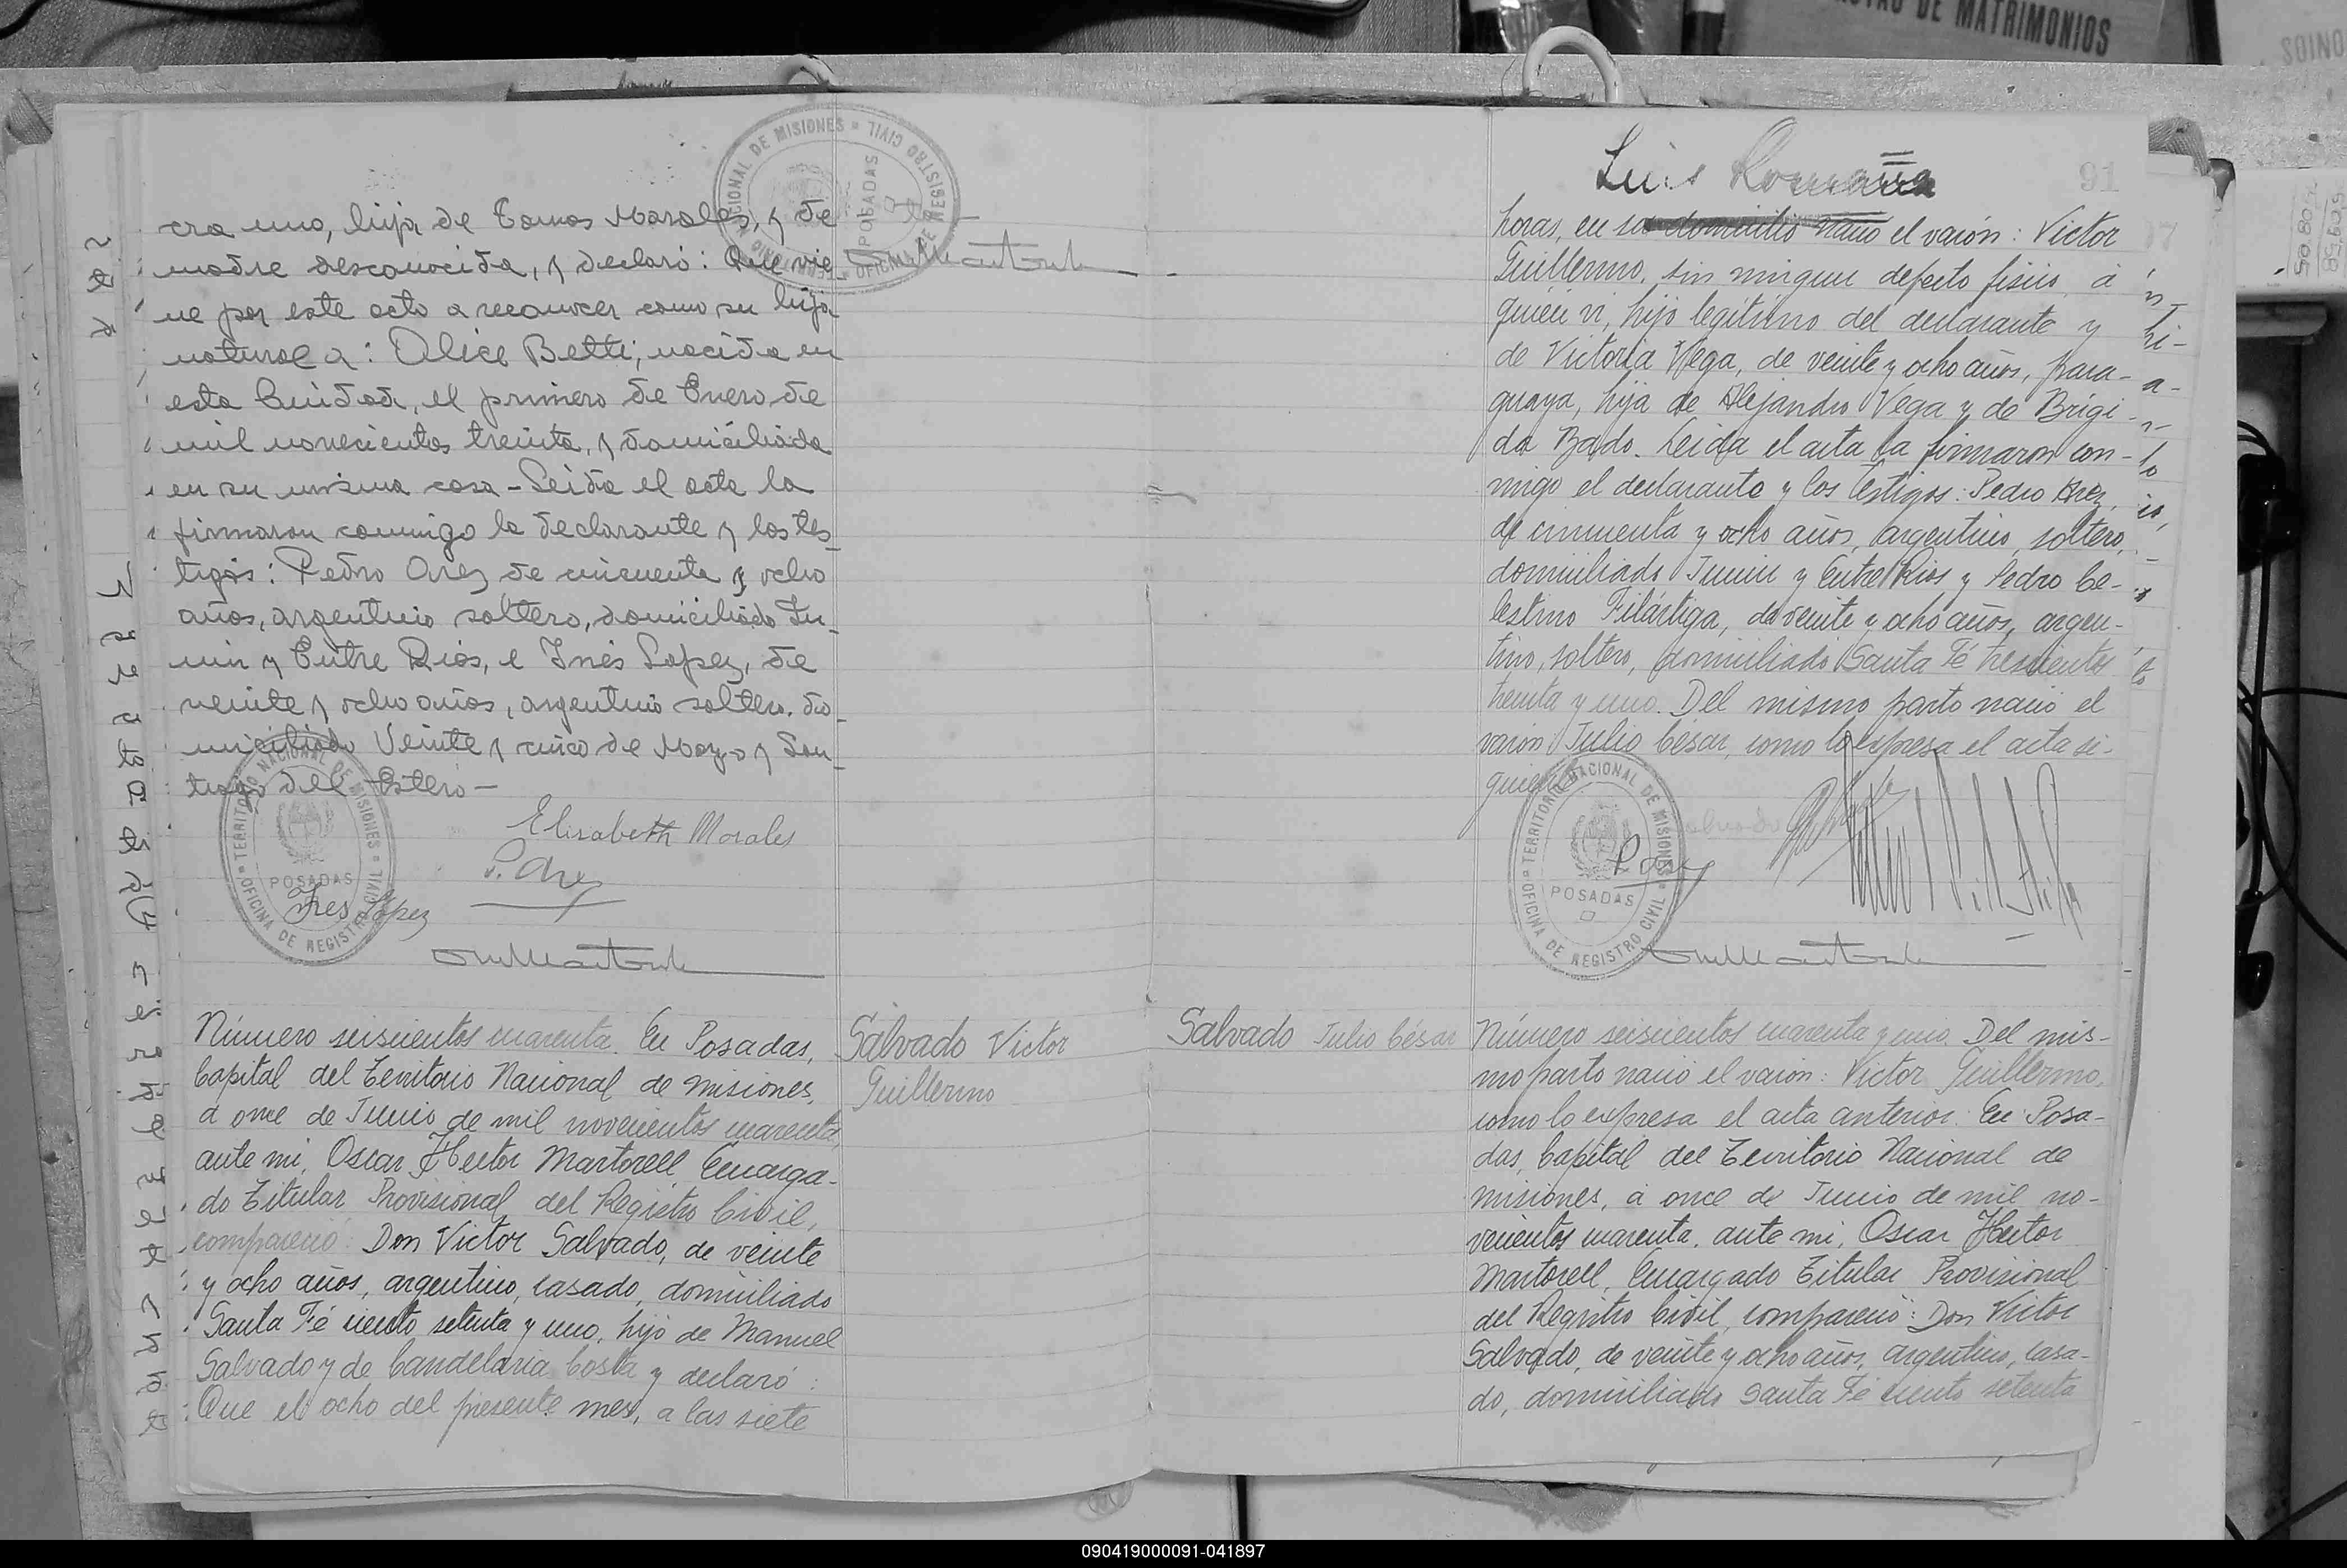 DE MATRIMONIOS
TERRITORIO NACIONAL DE MISIONES = OFICINA DE REGISTRO CIVIL =
POSADAS
cra uno, hija de Tomas Morales, y de
madre desconocida, y declaró: Que vie-
ne por este acto a reconocer como su hija
natural a: Alice Betti; nacida en
esta Ciudad, el primero de Enero de
mil novecientos treinta, y domiciliada
en su misma casa - Leída el acta la
firmaron conmigo la declarante y los tes-
tigos: Pedro Arez de cincuenta y ocho
años, argentino soltero, domiciliado Ju-
nin y Entre Rios, e Inés Lopez, de
veinte y ocho años, argentino soltero, do-
miciliado Veinte y cinco de Mayo y San-
tiago del Estero -
Elisabeth Morales
P. Arez
Ines Lopez
TERRITORIO NACIONAL DE MISIONES = OFICINA DE REGISTRO CIVIL =
POSADAS
Número seiscientos cuarenta. En Posadas,
Capital del Territorio Nacional de Misiones,
á once de Junio de mil novecientos cuarenta,
ante mi, Oscar Hector Martorell, Encarga-
do Titular Provisional del Registro Civil,
compareció: Don Victor Salvado, de veinte
y ocho años, argentino, casado, domiciliado
Santa Fé ciento setenta y uno, hijo de Manuel
Salvado y de Candelaria Costa y declaró:
Que el ocho del presente mes, a las siete
Salvado Victor
Guillermo
Luis
91
horas, en su domicilio nació el varón: Victor
Guillermo, sin ningun defecto físico, á
quien vi, hijo legítimo del declarante y
de Victoria Vega, de veinte y ocho años, para-
guaya, hija de Alejandro Vega y de Brígi-
da Bado. Leida el acta la firmaron con-
migo el declarante y los testigos: Pedro Arez,
de cincuenta y ocho años, argentino, soltero,
domiciliado Junin y Entre Rios y Pedro Ce-
lestino Filártiga, de veinte y ocho años, argen-
tino, soltero, domiciliado Santa Fé trescientos
treinta y uno. Del mismo parto nació el
varón Julio César, como lo expresa el acta si-
guiente
TERRITORIO NACIONAL DE MISIONES = OFICINA DE REGISTRO CIVIL =
POSADAS
Salvado Julio César
Número seiscientos cuarenta y uno. Del mis-
mo parto nació el varón: Victor Guillermo,
como lo expresa el acta anterior. En Posa-
das, Capital del Territorio Nacional de
Misiones, á once de Junio de mil no-
vecientos cuarenta, ante mi, Oscar Hector
Martorell, Encargado Titular Provisional
del Registro Civil, compareció: Don Victor
Salvado, de veinte y ocho años, argentino, casa-
do, domiciliado Santa Fé ciento setenta
090419000091-041897